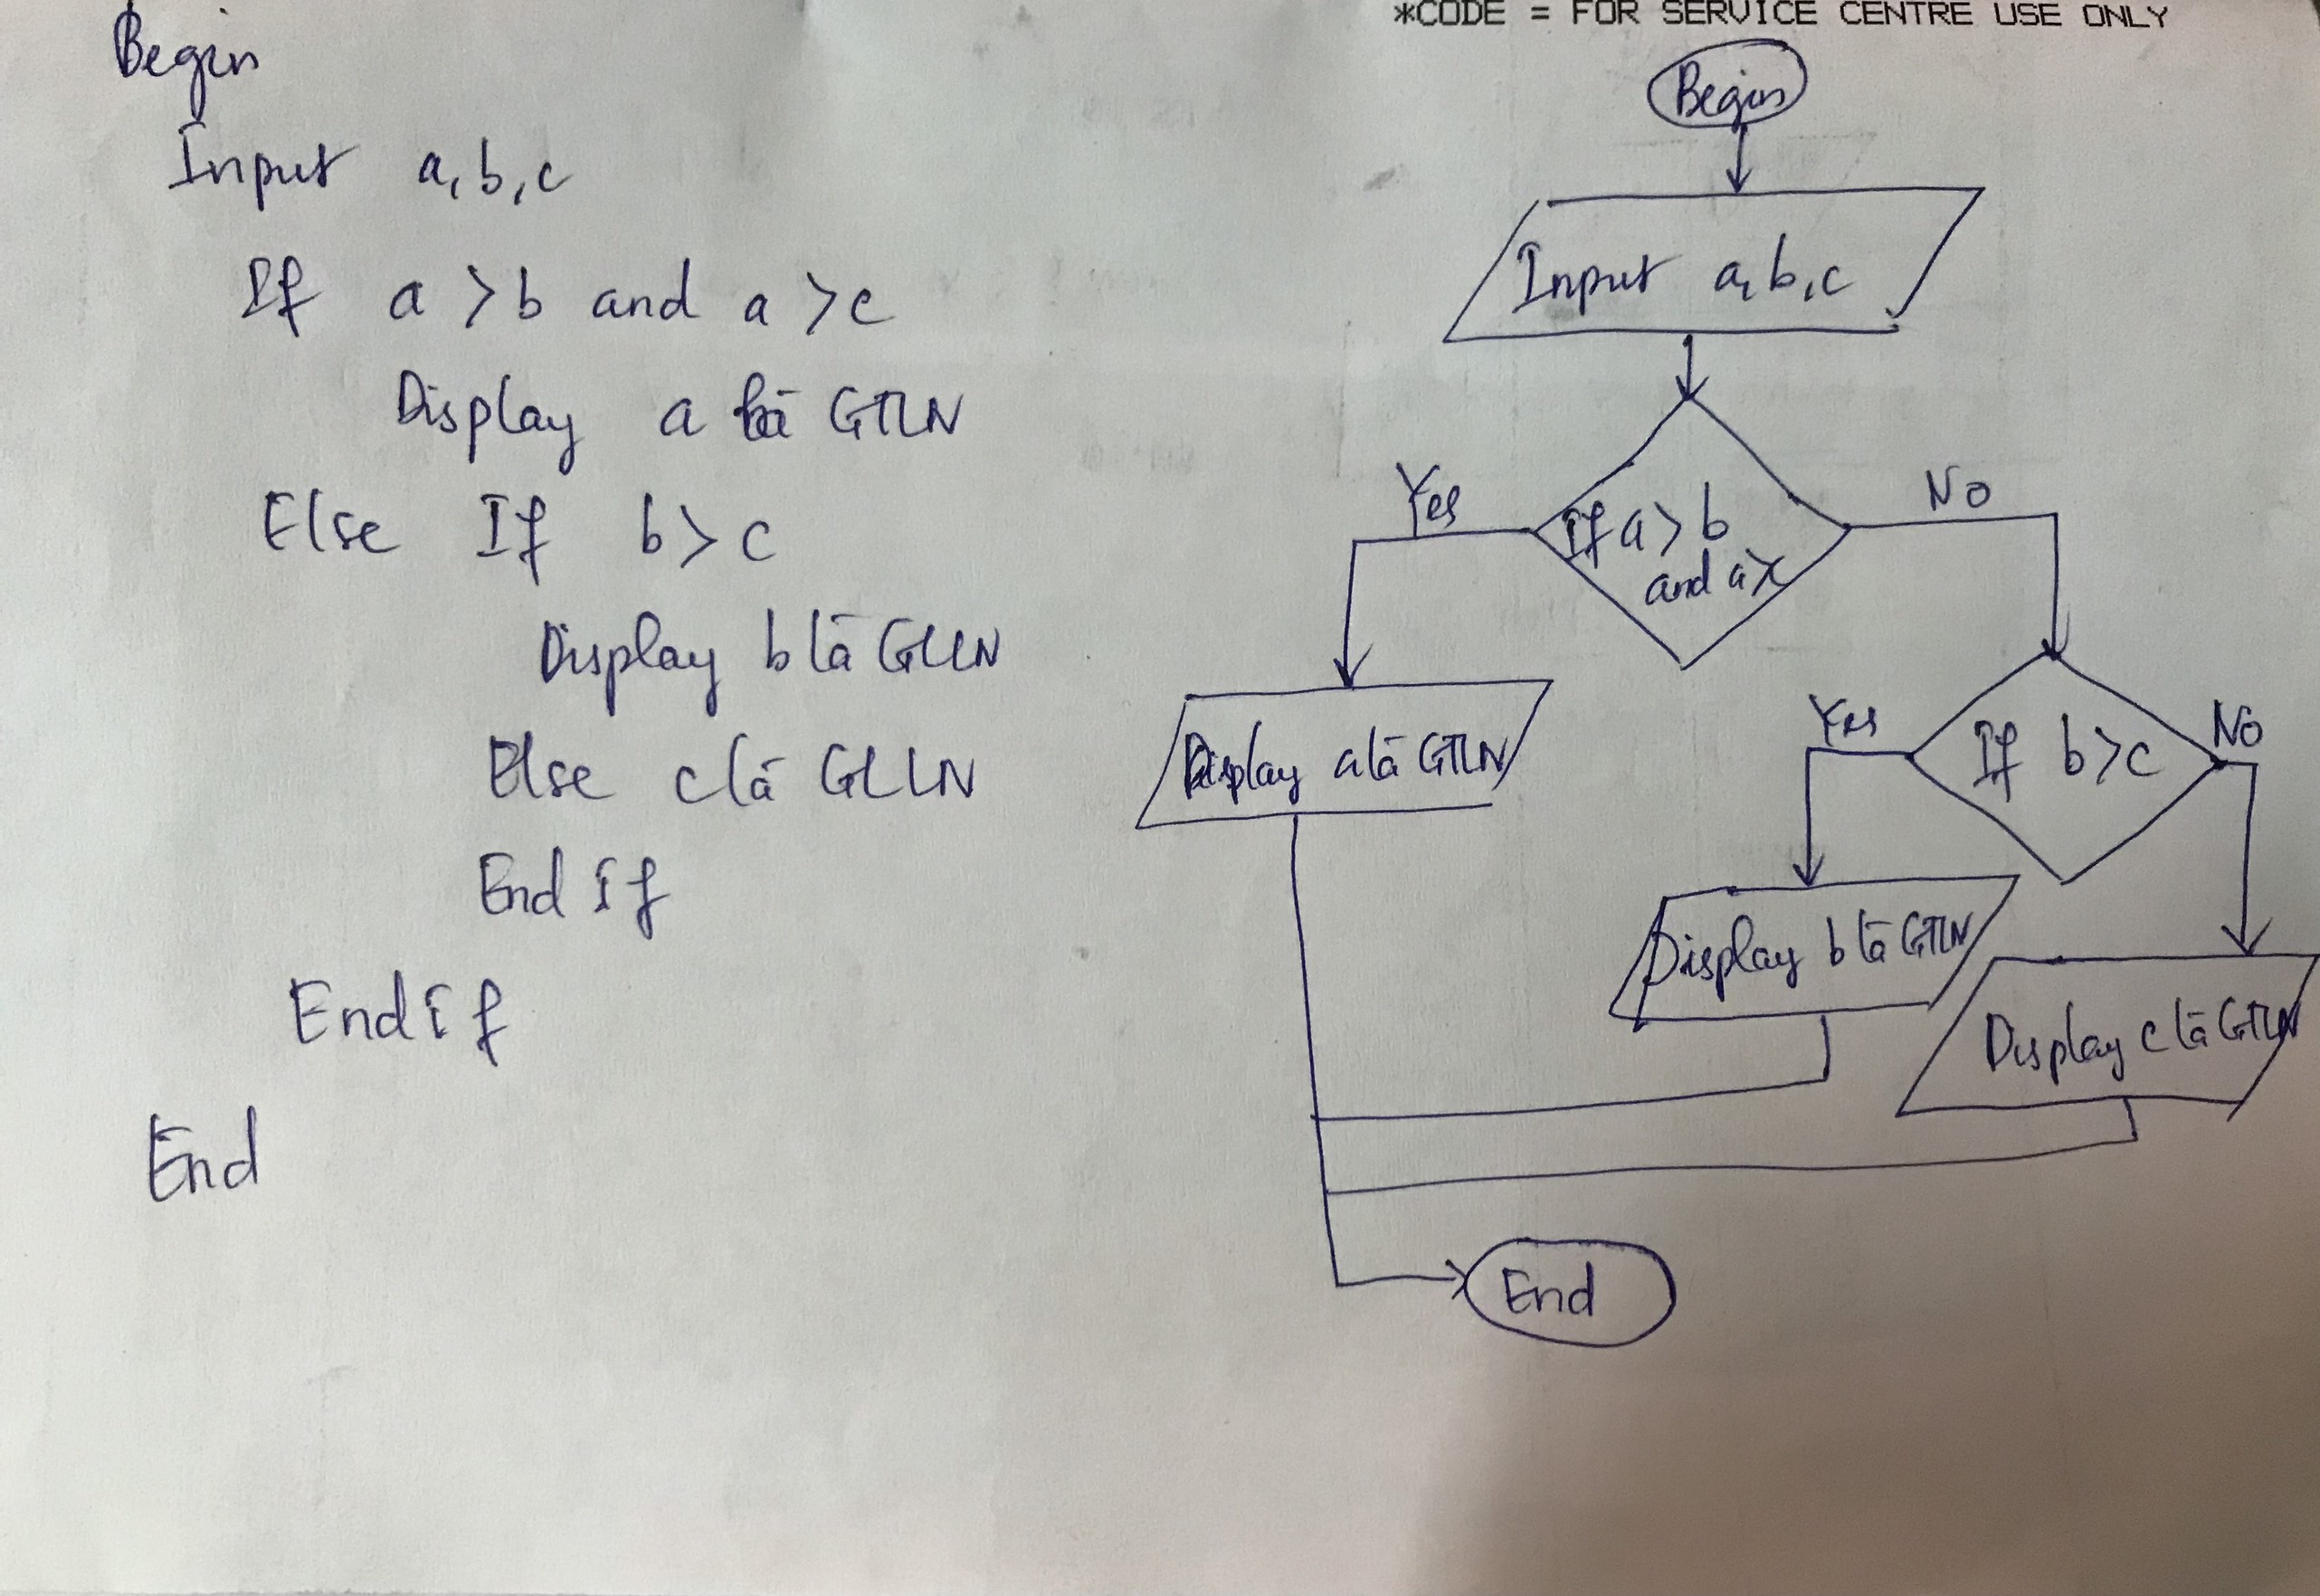 *CODE = FOR SERVICE CENTRE USE ONLY
Begin
Input a, b, c
If a > b and a > c
Display a là GTLN
Else If b > c
Display b là GLLN
Else c là GLLN
End if
End if
End
Begin
Input a, b, c
If a > b
and a >c
Yes
No
Display a là GTLN
If b > c
Yes
No
Display b là GTLN
Display c là GTLN
End